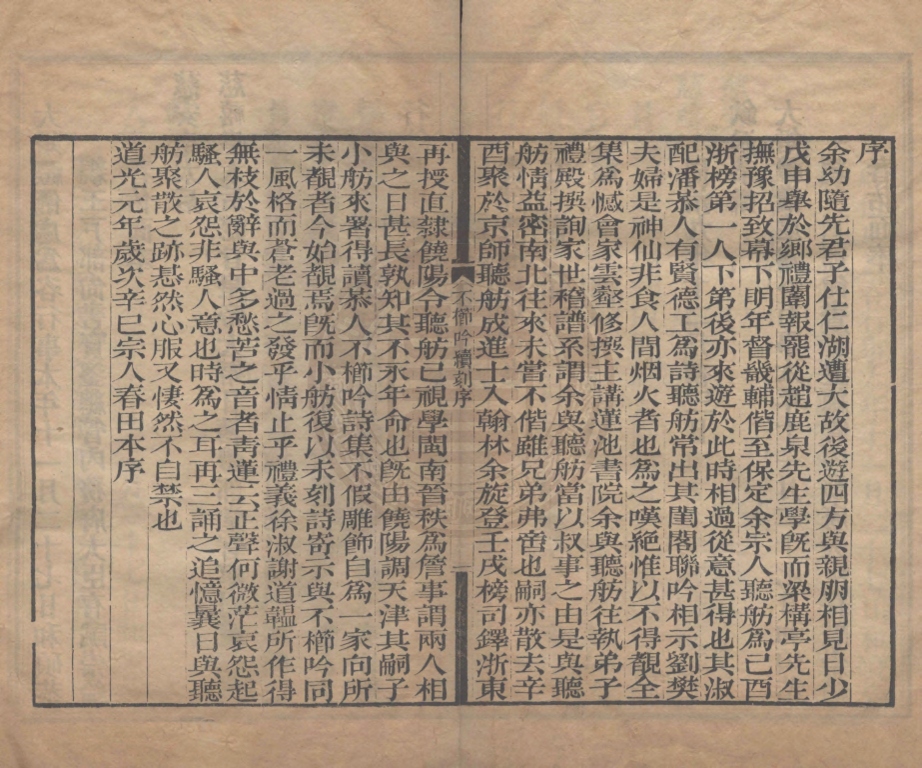 序
余幼隨先君子仕仁湖遭大故後遊四方與親朋相見日少
戊申舉於鄉禮闈報罷從趙鹿泉先生學旣而梁構亭先生
撫豫招致幕下明年督畿輔偕至保定余宗人聽舫爲己酉
浙榜第一人下第後亦來遊於此時相過從意甚得也其淑
配潘恭人有賢德工爲詩聽舫常出其閨閣聯吟相示劉樊
夫婦是神仙非食人間烟火者也爲之嘆絶惟以不得覩全
集爲憾會家雲壑修撰主講蓮池書院余與聽舫往執弟子
禮殿撰詢家世稽譜系謂余與聽舫當以叔事之由是與聽
舫情益密南北往來未嘗不偕雖兄弟弗啻也嗣亦散去辛
酉聚於京師聽舫成進士入翰林余旋登壬戌榜司鐸浙東
不櫛吟續刻序
一
再授直隸饒陽令聽舫已視學閩南晉秩爲詹事謂兩人相
與之日甚長孰知其不永年命也旣由饒陽調天津其嗣子
小舫來署得讀恭人不櫛吟詩集不假雕飾自爲一家向所
未覩者今始覩焉旣而小舫復以未刻詩寄示與不櫛吟同
一風格而蒼老過之發乎情止乎禮義徐淑謝道韞所作得
無枝於辭與中多愁苦之音者靑蓮云正聲何微茫哀怨起
騷人哀怨非騷人意也時爲之耳再三誦之追憶曩日與聽
舫聚散之跡惎然心服又悽然不自禁也
道光元年歲次辛巳宗人春田本序